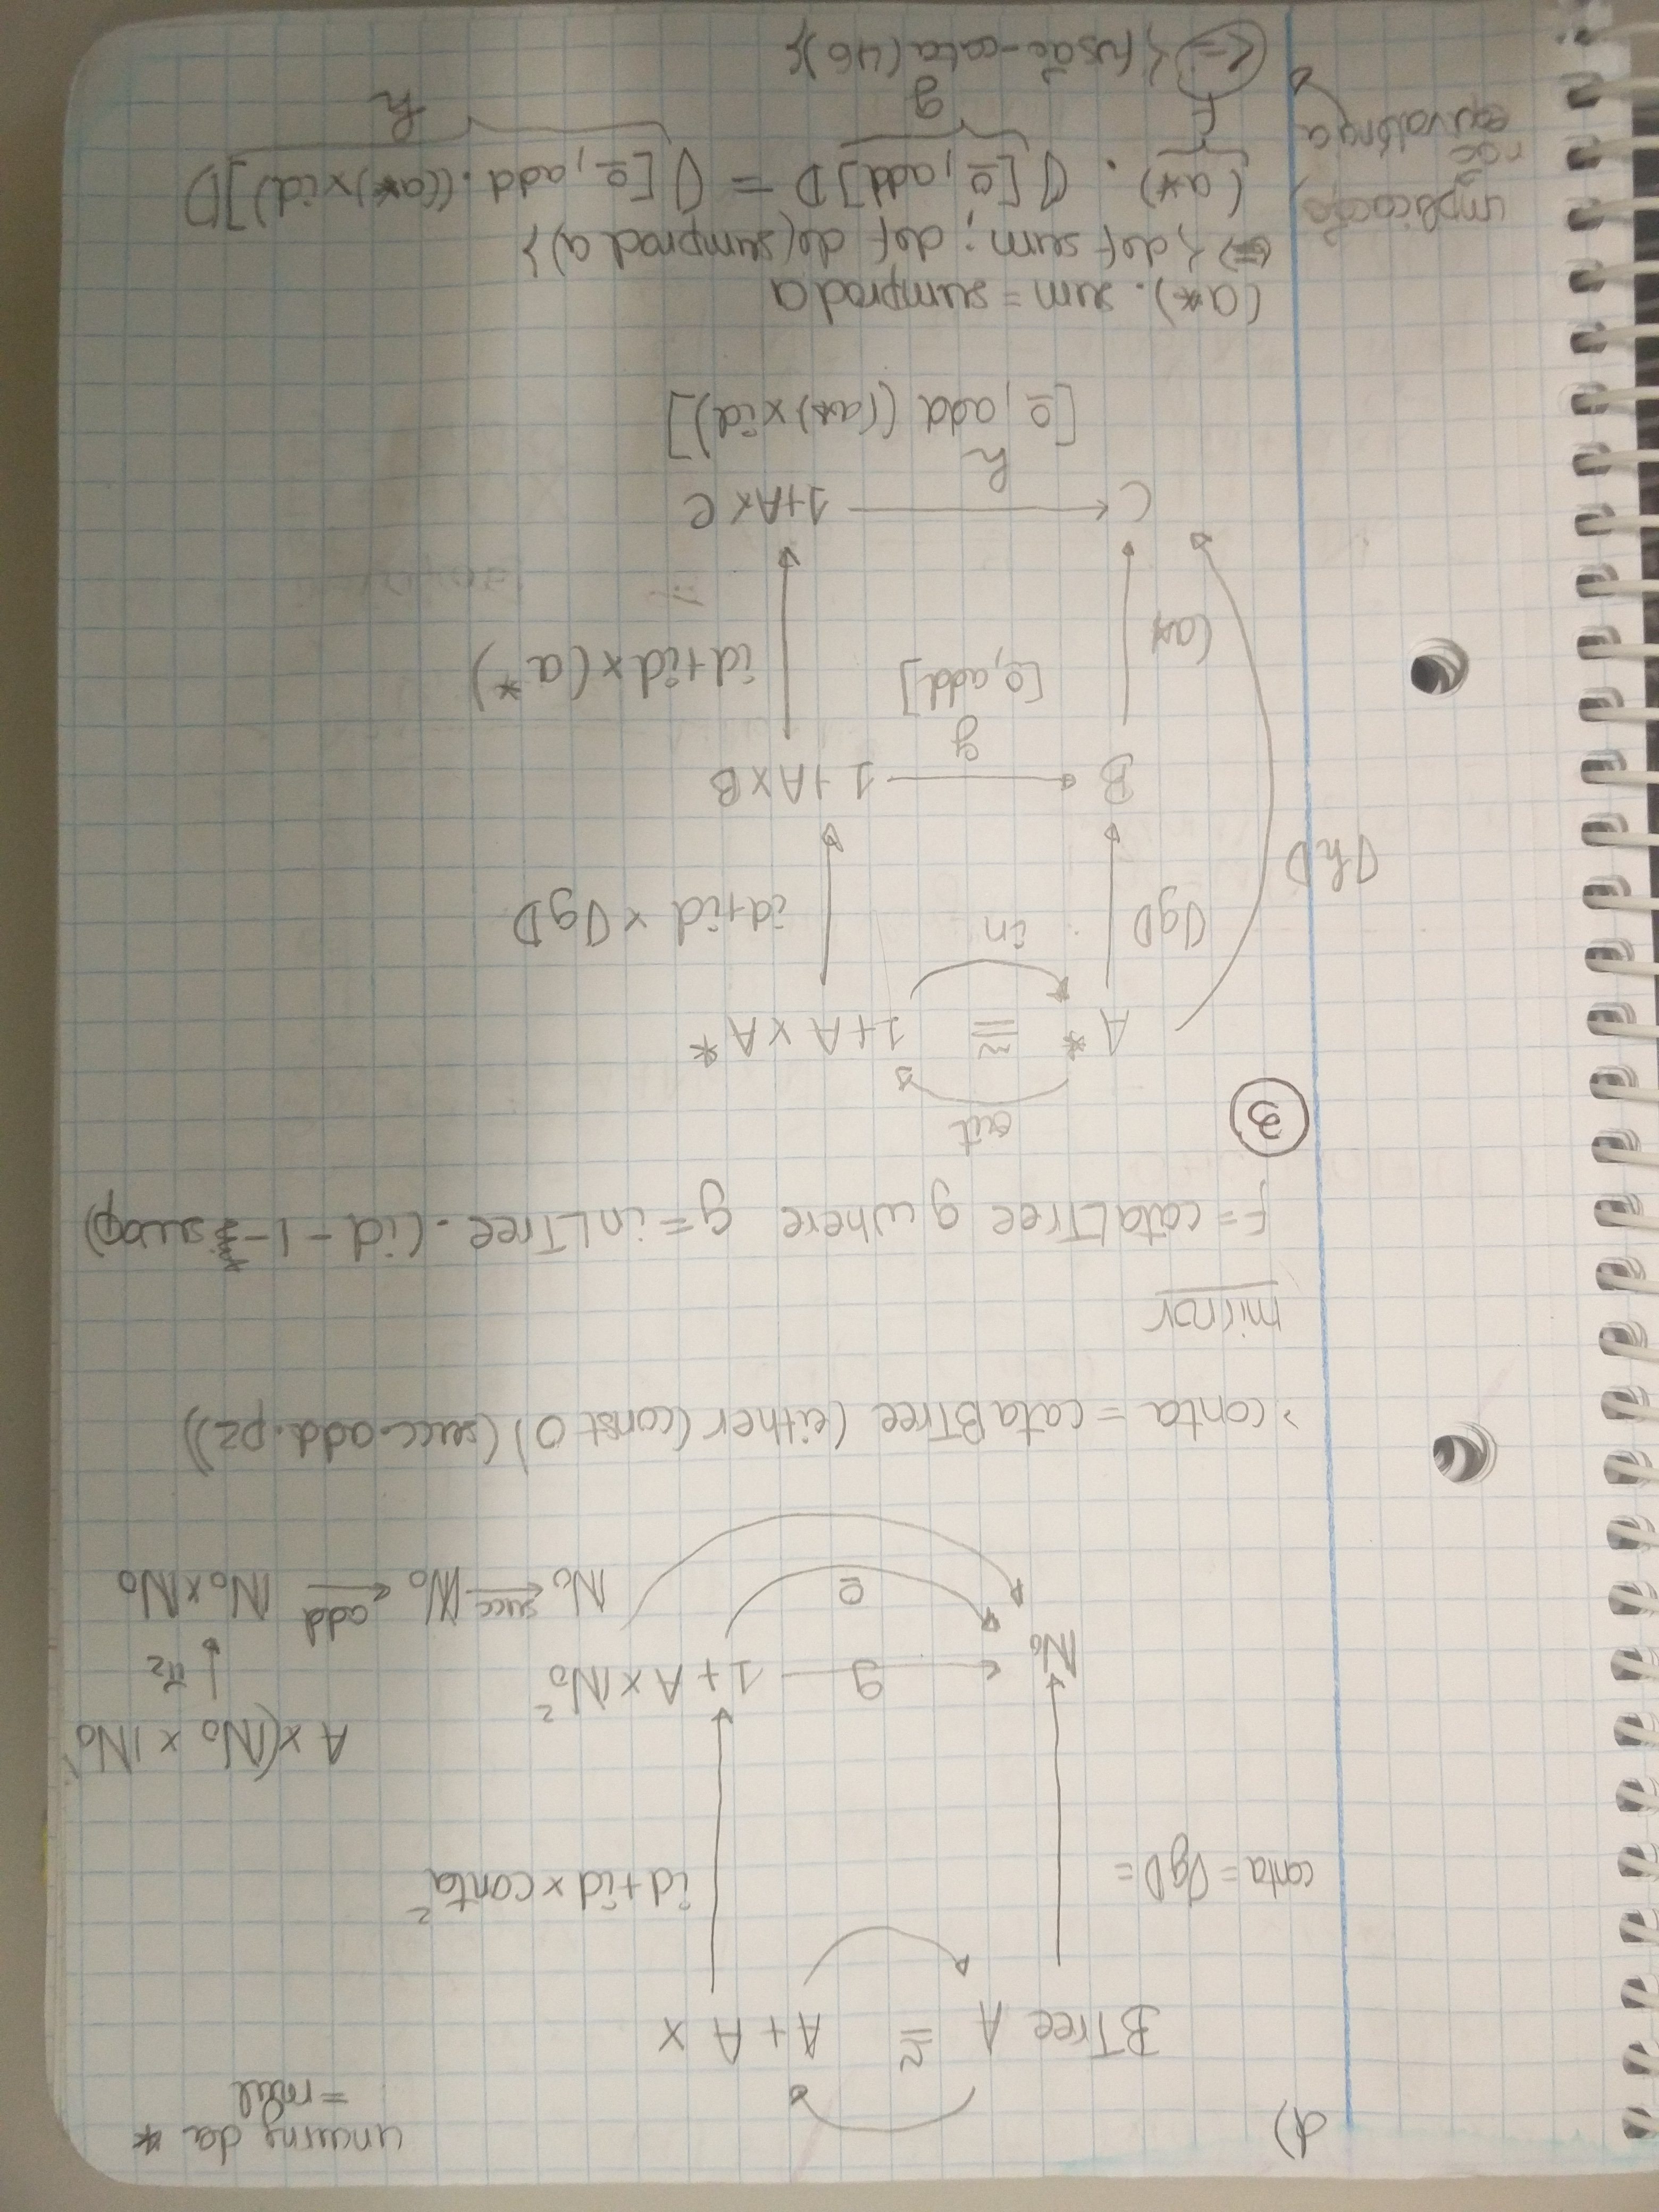 d)
uncurry da *
= mul
BTree A ≅ A + A x
conta = ⦇g⦈ =
id + id × conta²
A × (ℕ₀ × ℕ₀)
↓ π₂
ℕ₀ ← g — 1 + A × ℕ₀²
0
ℕ₀ ← succ ℕ₀ ← add ℕ₀ × ℕ₀
> conta = cataBTree (either (const 0) (succ.add.p2))
mirror
f = cataLTree g where g = inLTree . (id -|- swap)
3
out
A* ≅ 1 + A × A*
in
⦇g⦈
id + id × ⦇g⦈
⦇h⦈
B ← 1 + A × B
g
[0, add]
(a*)
id + id × (a*)
C ← 1 + A × C
h
[0, add ((a*) × id)]
(a*) . sum = sumprod a
⇔ { def sum ; def de (sumprod a) }
(a*) . ⦇[0, add]⦈ = ⦇[0, add . ((a*) × id)]⦈
f g h
implicação
não
equivalência
<= { fusão-cata (46) }